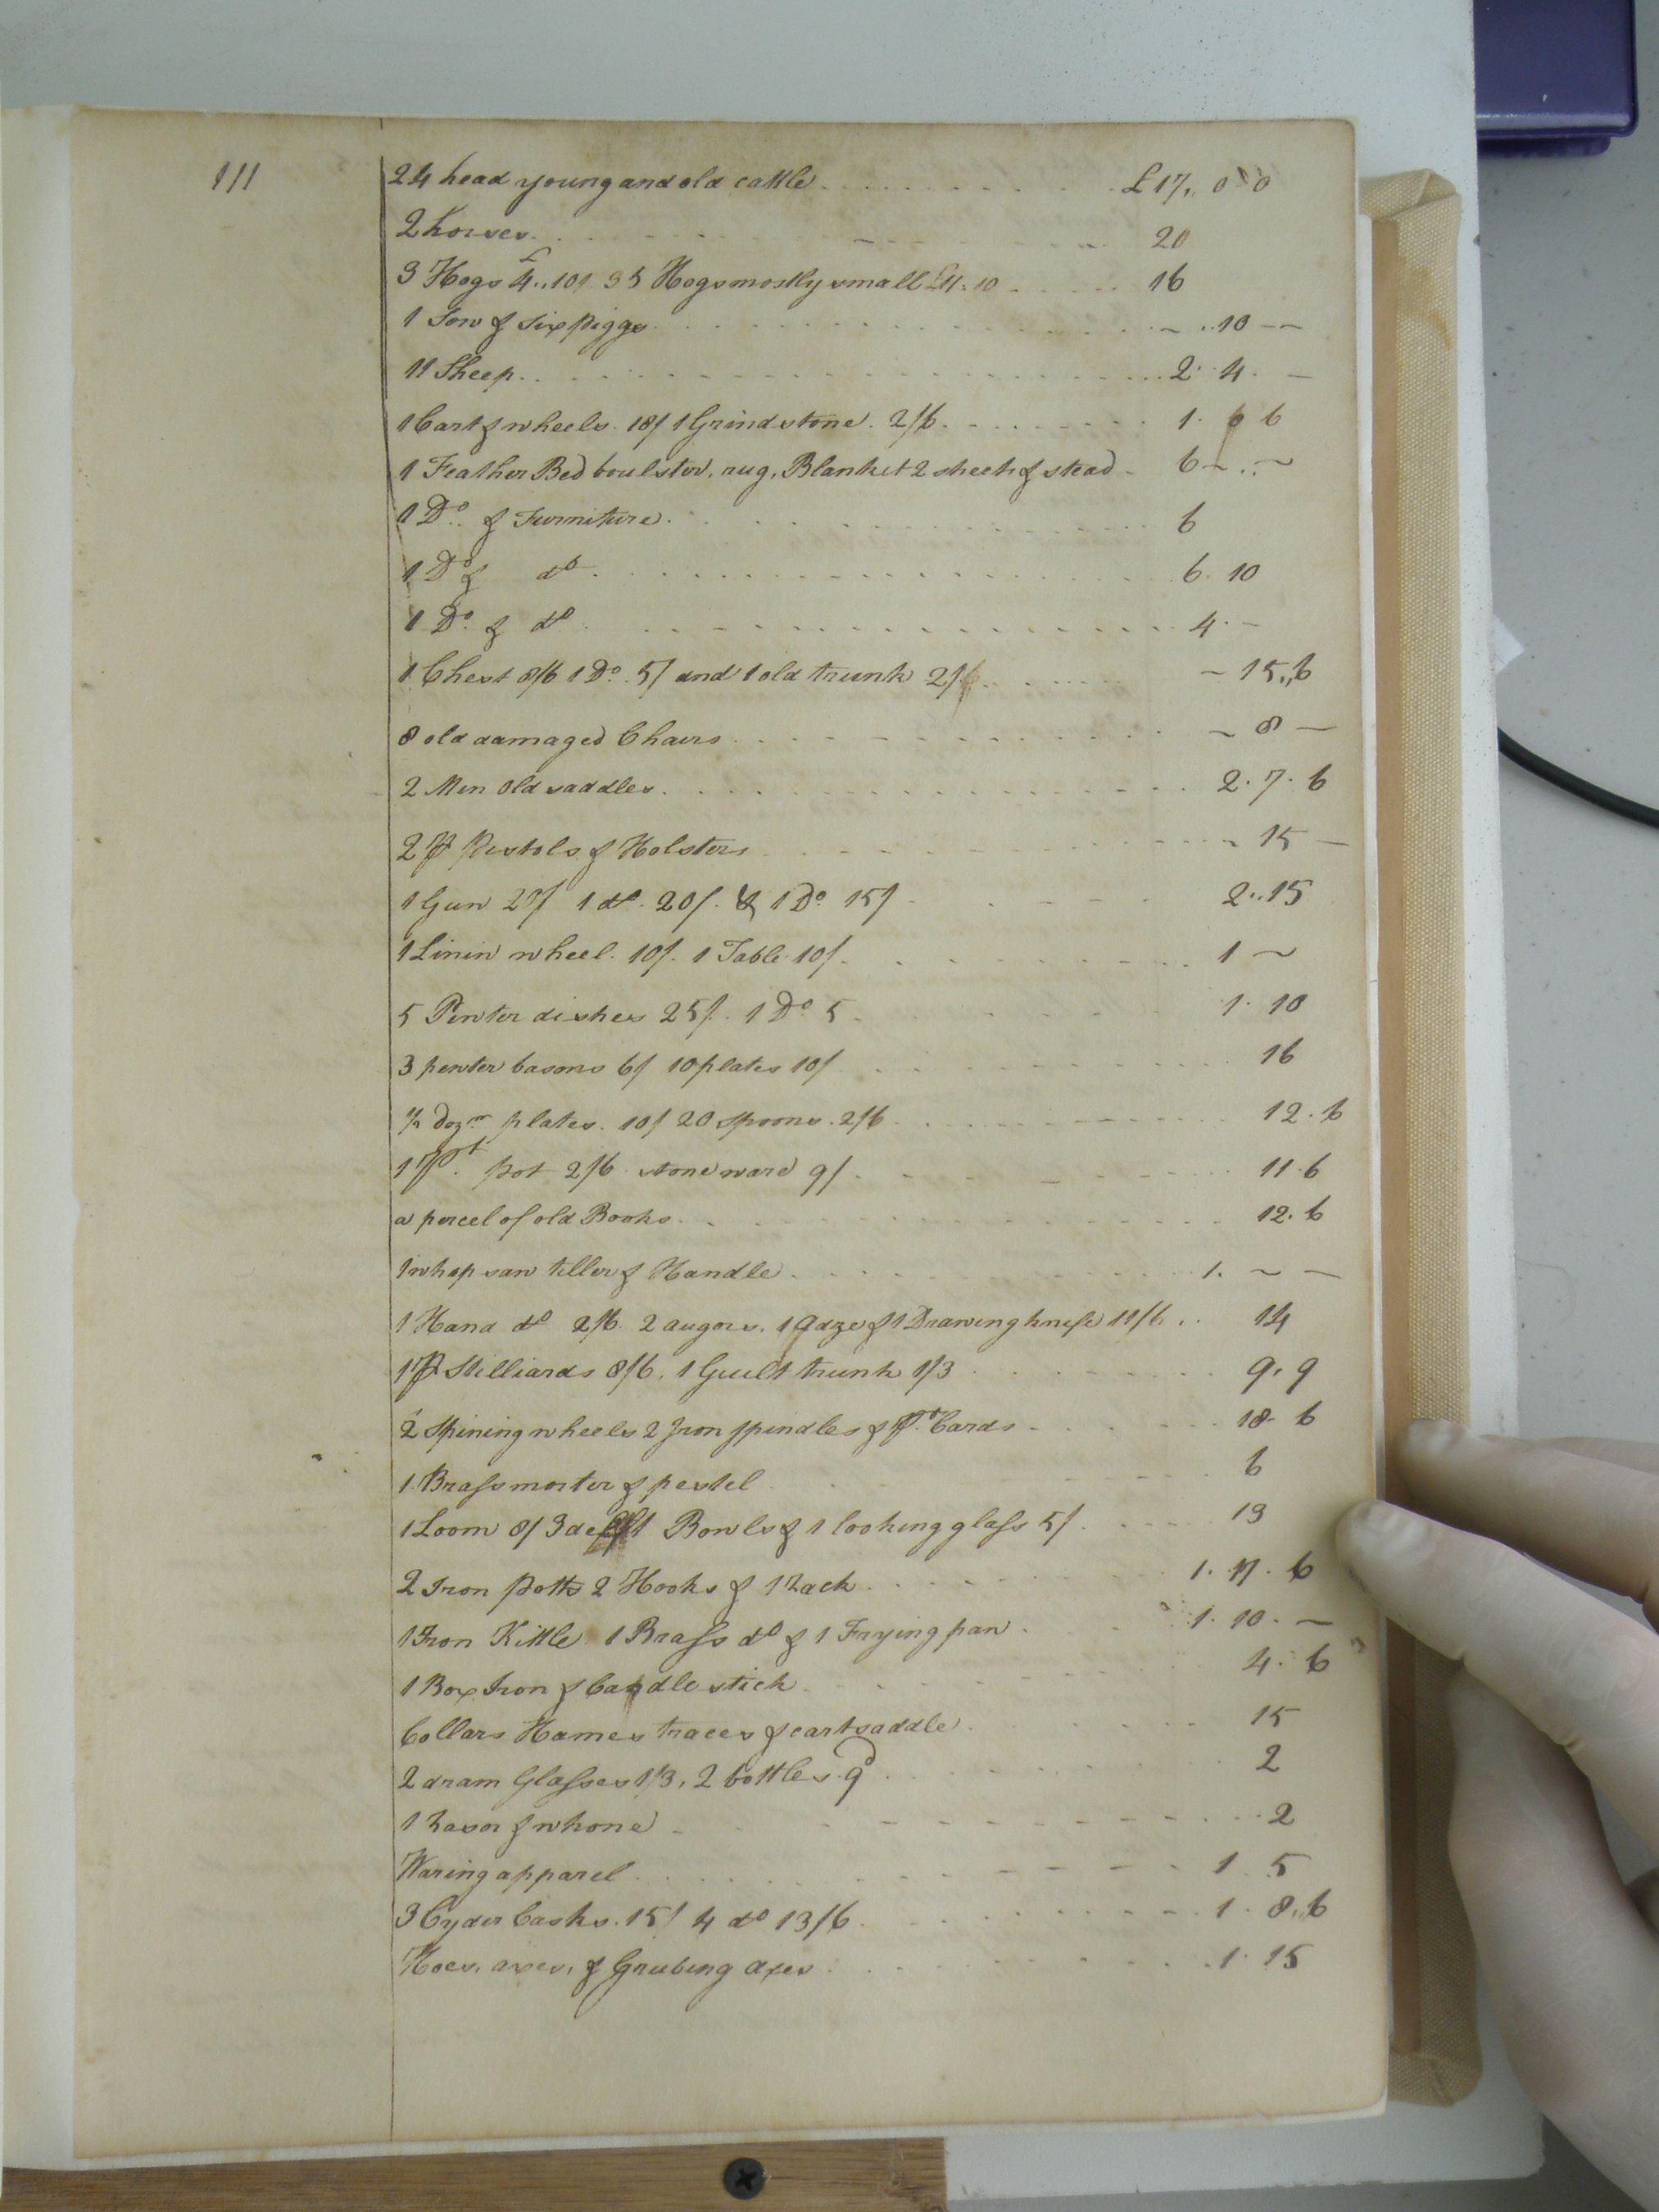 111
24 head young and old cattle £17,, 0 0
2 horses 20
3 Hogs £4,,10/ 35 Hogs mostly small £11.10 16
1 Sow & Six piggs ~ ..10 --
11 Sheep 2. 4. —
1 Cart & wheels. 18/ 1 Grindstone. 2/6 1. 6
1 Feather Bed boulster, rug, Blanket 2 sheets & stead 6 ~ .. ~
1 Do. & Furniture. 6
1 Do & do 6. 10
1 Do. & do 4. -
1 Chest 8/6 1 Do. 5/ and 1 old trunk 2/ ~ 15,,6
8 old damaged Chairs ~ 8 —
2 Men old saddles 2. 7. 6
2 pr Pistols & Holsters ~ 15 —
1 Gun 20/ 1 do. 20/. & 1 Do. 15/ 2..15
1 Linin wheel. 10/. 1 Table 10/ 1 ~
5 Pewter dishes 25/. 1 Do 5 1. 10
3 pewter basons 6/ 10 plates 10/ 16
½ dozn plates. 10/ 20 spoons. 2/6 12. 6
1 pt. pot 2/6 stone ware 9/ 11. 6
a percel of old Books 12. 6
1 whep saw teller & Handle 1. ~ —
1 Hand do 2/6. 2 augors. 1 adze & 1 Drawing knife 11/6 14
1 pr Stilliards 8/6. 1 Guilt trunk 1/3 9. 9
2 Spining wheels 2 Iron spindles & pr. Cards 18. 6
1 Brass morter & pestel 6
1 Loom 8/ 3 delft Bowls & 1 looking glass 5/ 13
2 Iron potts 2 Hooks & 1 Rack 1. 17. 6
1 Iron Kittle 1 Brass do & 1 Frying pan 1. 10. —
1 Box Iron & Candle stick 4. 6
Collars Hames traces & cart saddle 15
2 dram Glasses 1/3, 2 bottles. 9d 2
1 Rasor & whone 2
Waring apparel 1 5
3 Cyder Casks. 15/ 4 do 13/6 1. 8,,6
Hoes, axes, & Grubing axes 1. 15